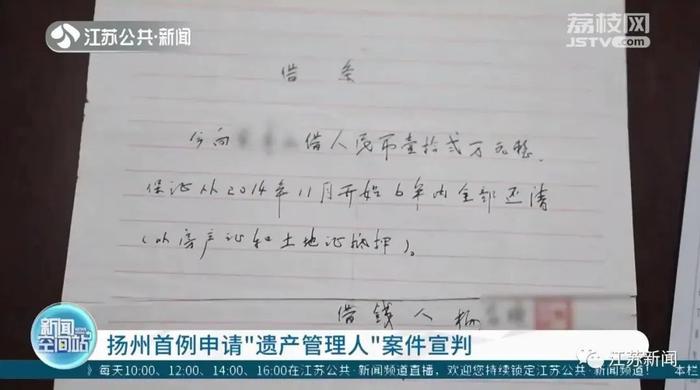 江苏公共·新闻
荔枝网
JSTV.com
借条
今向 借人民币壹拾贰万元整.
保证从2014年11月开始6年内全部还清
(以房产证和土地证抵押)。
借钱人 杨
新闻
空间站
扬州首例申请"遗产管理人"案件宣判
江苏新闻
》每天10:00、12:00、14:00、16:00在江苏公共·新闻频道直播,欢迎您持续锁定江苏公共·新闻频道! 本栏